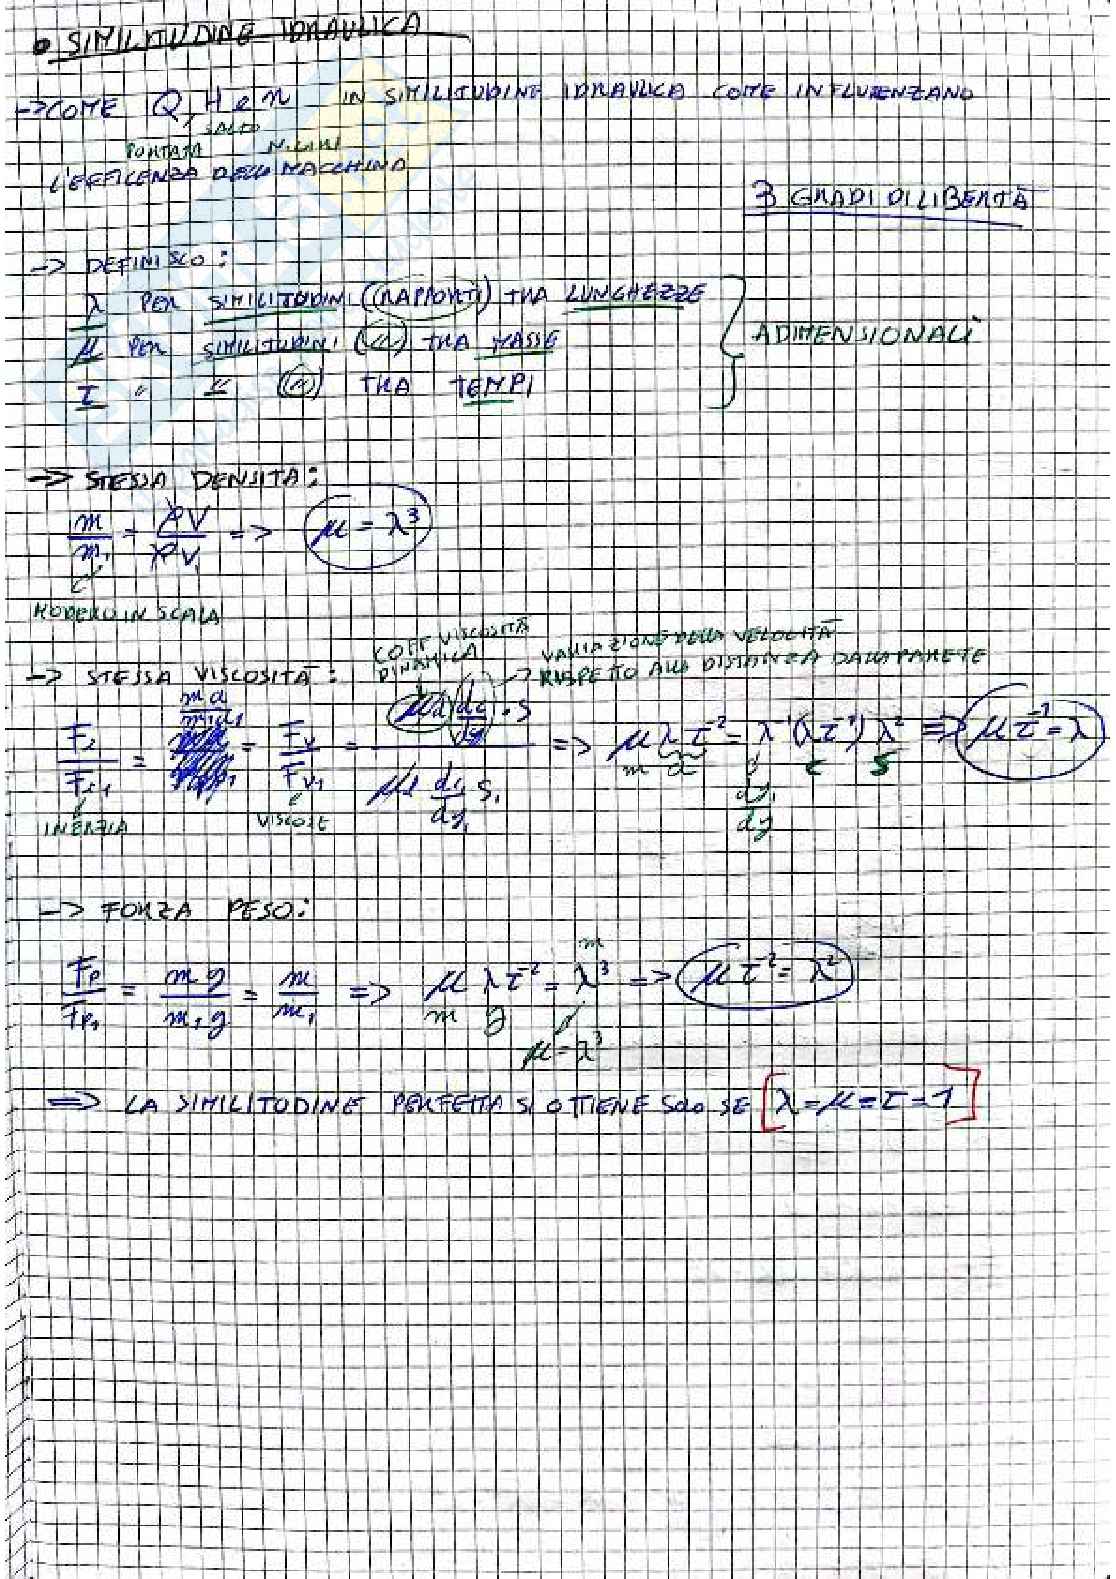 • SIMILITUDINE IDRAULICA
-> COME Q, H e n IN SIMILITUDINE IDRAULICA COME INFLUENZANO
PORTATA SALTO N. GIRI
L'EFFICENZA DELLA MACCHINA
3 GRADI DI LIBERTÀ
-> DEFINISCO:
λ PER SIMILITUDINI (RAPPORTI) TRA LUNGHEZZE
μ PER SIMILITUDINI (") TRA MASSE
τ " " (") TRA TEMPI
ADIMENSIONALI
-> STESSA DENSITÀ:
m/m₁ = ρV/ρV₁ => μ = λ³
MODELLO IN SCALA
COEFF VISCOSITÀ DINAMICA
VARIAZIONE DELLA VELOCITÀ
RISPETTO ALLA DISTANZA DALLA PARETE
-> STESSA VISCOSITÀ:
Fi/Fi₁ = m a/m₁a₁ = Fv/Fv₁ = μd (dc/dy) · S / μd dc₁/dy₁ S₁ => μ λ τ⁻² = λ⁻¹ (λτ⁻¹) λ² => μ τ⁻¹ = λ
m a c S
dy₁/dy
INERZIA VISCOSE
-> FORZA PESO:
Fp/Fp₁ = m g/m₁ g = m/m₁ => μ λ τ⁻² = λ³ => μ τ⁻² = λ²
m g m
μ = λ³
=> LA SIMILITUDINE PERFETTA SI OTTIENE SOLO SE [λ = μ = τ = 1]